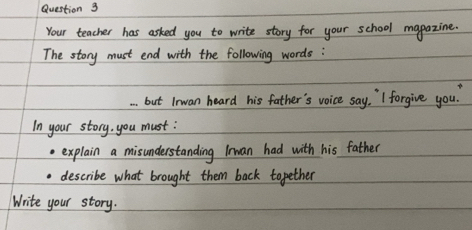 Question 3
Your teacher has asked you to write story for your school magazine.
The story must end with the following words :
... but Irwan heard his father's voice say, "I forgive you."
In your story. you must :
• explain a misunderstanding Irwan had with his father
• describe what brought them back together
Write your story.